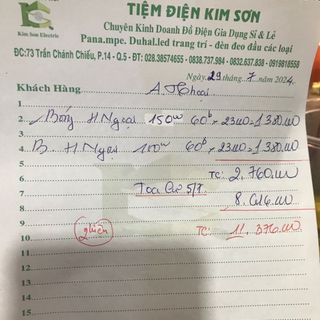 TIỆM ĐIỆN KIM SƠN
Kim Son Electric
Chuyên Kinh Doanh Đồ Điện Gia Dụng Sỉ & Lẻ
Pana.mpe. Duhal.led trang trí - đèn đeo đầu các loại
ĐC:73 Trần Chánh Chiếu, P.14 - Q.5 - ĐT: 028.38574655 - 0838.737.838 - 0832.637.838 - 0919818558
Ngày 29 tháng 7 năm 2024
Khách Hàng A. Thoại
1
2 Bóng H Ngoại 150W 60b x 23.000 = 1.380.000
3
4 B. H Ngoại 100W 60b x 23.000 = 1.380.000
5
6 TC: 2.760.000
7 Toa Cũ 5/7
8 8.616.000
9
10 TC: 11.376.000
11
12
13
14
15